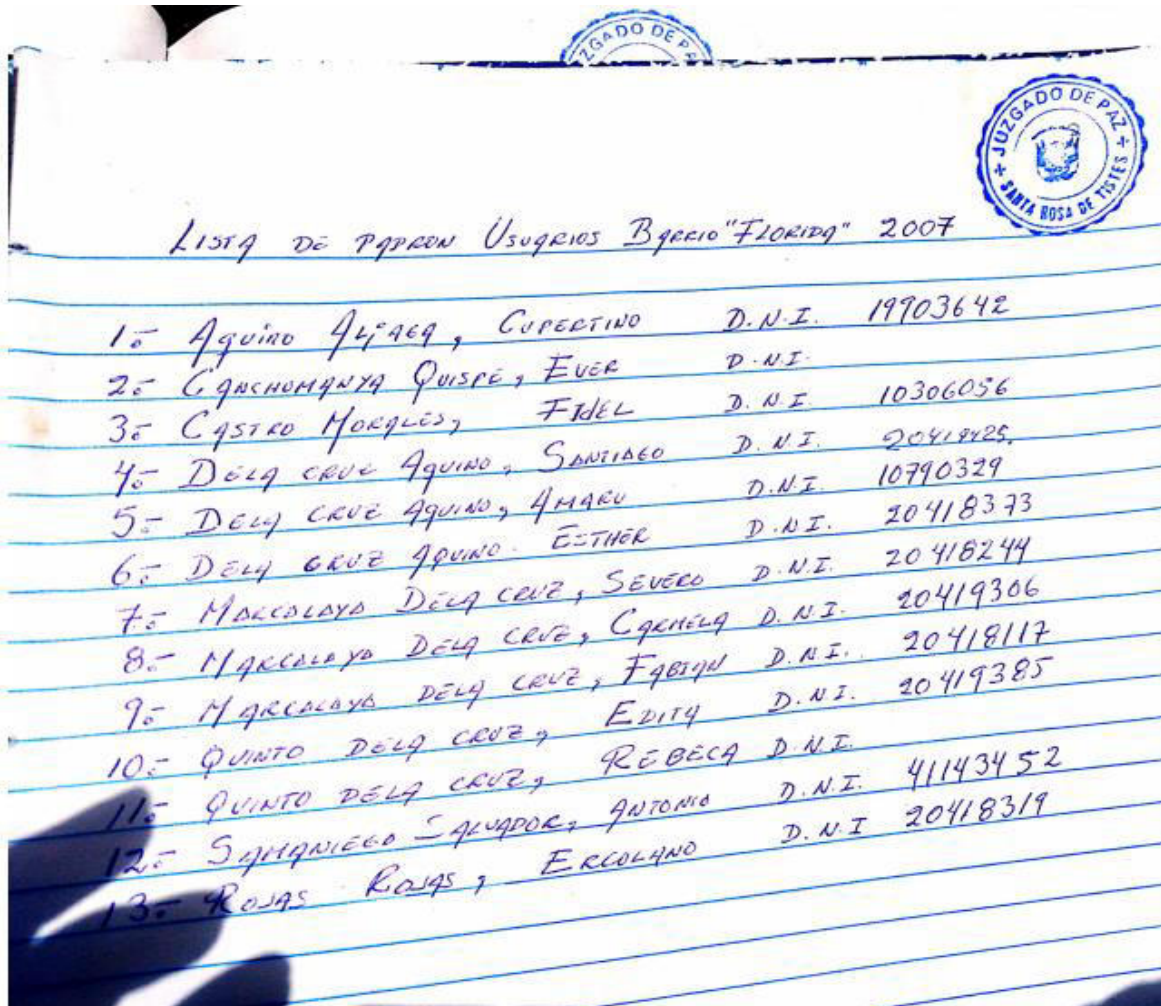 JUZGADO DE PA
+ JUZGADO DE PAZ +
SANTA ROSA DE TISTES
LISTA DE PADRON USUARIOS BARRIO "FLORIDA" 2007
1.- AQUINO ALIAGA, CUPERTINO D.N.I. 19903642
2.- CANCHUMANYA QUISPE, EVER D.N.I.
3.- CASTRO MORALES, FIDEL D.N.I. 10306056
4.- DELA CRUZ AQUINO, SANTIAGO D.N.I.
5.- DELA CRUZ AQUINO, AMARU D.N.I. 10790329
6.- DELA CRUZ AQUINO. ESTHER D.N.I. 20418373
7.- MARCALAYA DELA CRUZ, SEVERO D.N.I. 20418244
8.- MARCALAYA DELA CRUZ, CARMELA D.N.I. 20419306
9.- MARCALAYA DELA CRUZ, FABIAN D.N.I. 20418117
10.- QUINTO DELA CRUZ, EDITA D.N.I. 20419385
11.- QUINTO DELA CRUZ, REBECA D.N.I.
12.- SAMANIEGO SALVADOR, ANTONIO D.N.I. 41143452
13.- ROJAS ROJAS, ERCOLANO D.N.I 20418319